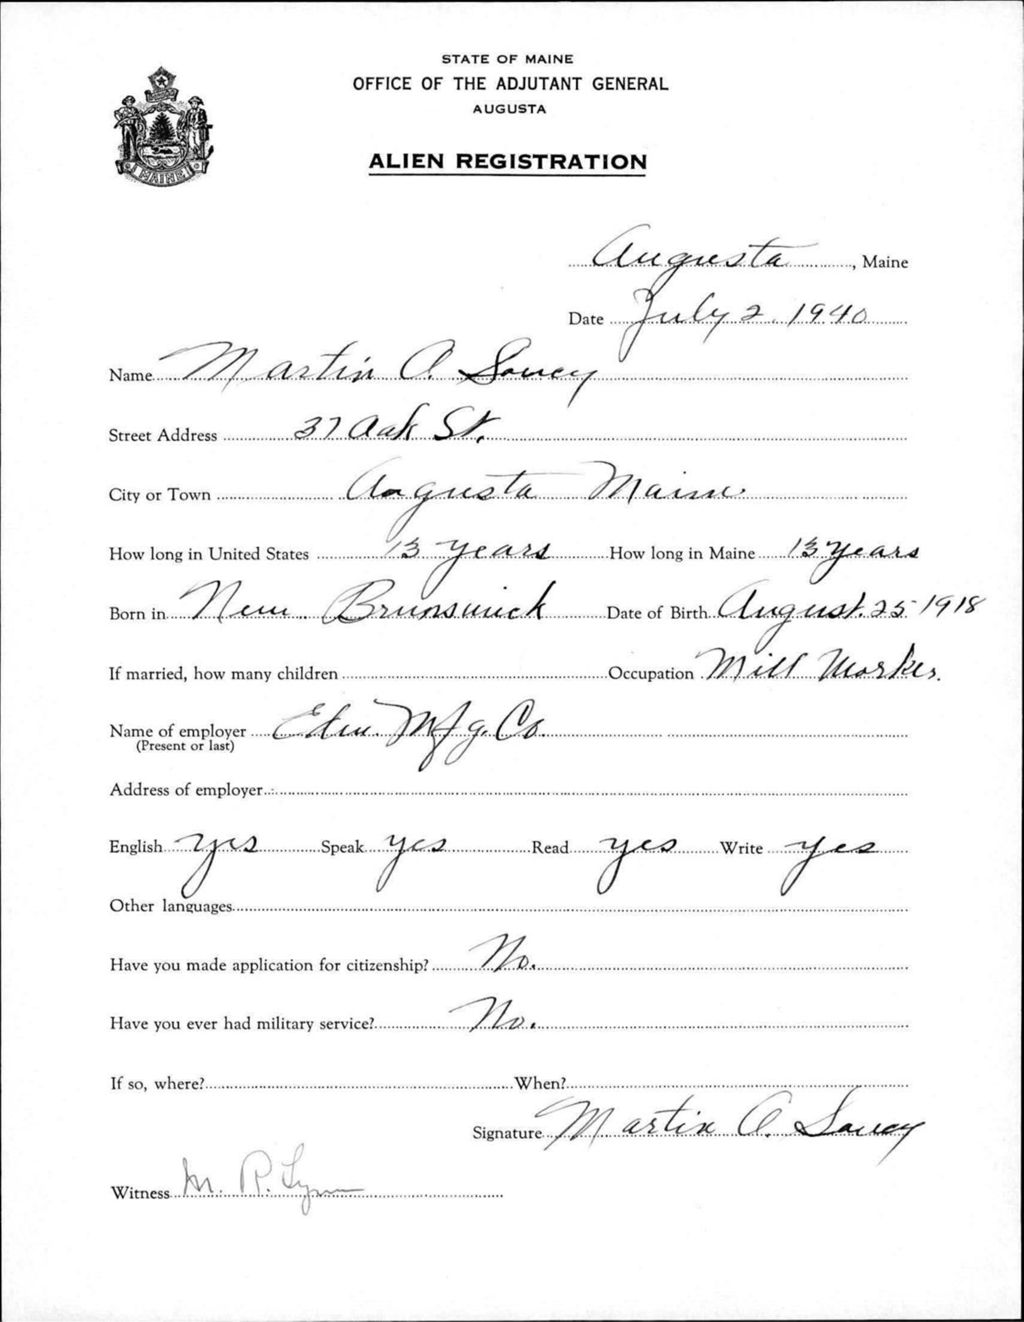 STATE OF MAINE
OFFICE OF THE ADJUTANT GENERAL
AUGUSTA
ALIEN REGISTRATION
MAINE
Augusta, Maine
Date July 2. 1940
Name Martin A. Soucy
Street Address 37 Oak St.
City or Town Augusta Maine
How long in United States 13 years How long in Maine 13 years
Born in New Brunswick Date of Birth August. 25 1918
If married, how many children Occupation Mill Worker.
Name of employer Mfg. Co.
(Present or last)
Address of employer
English yes Speak yes Read yes Write yes
Other languages
Have you made application for citizenship? No.
Have you ever had military service? No.
If so, where? When?
Signature Martin A. Soucy
Witness M. R. Lynn